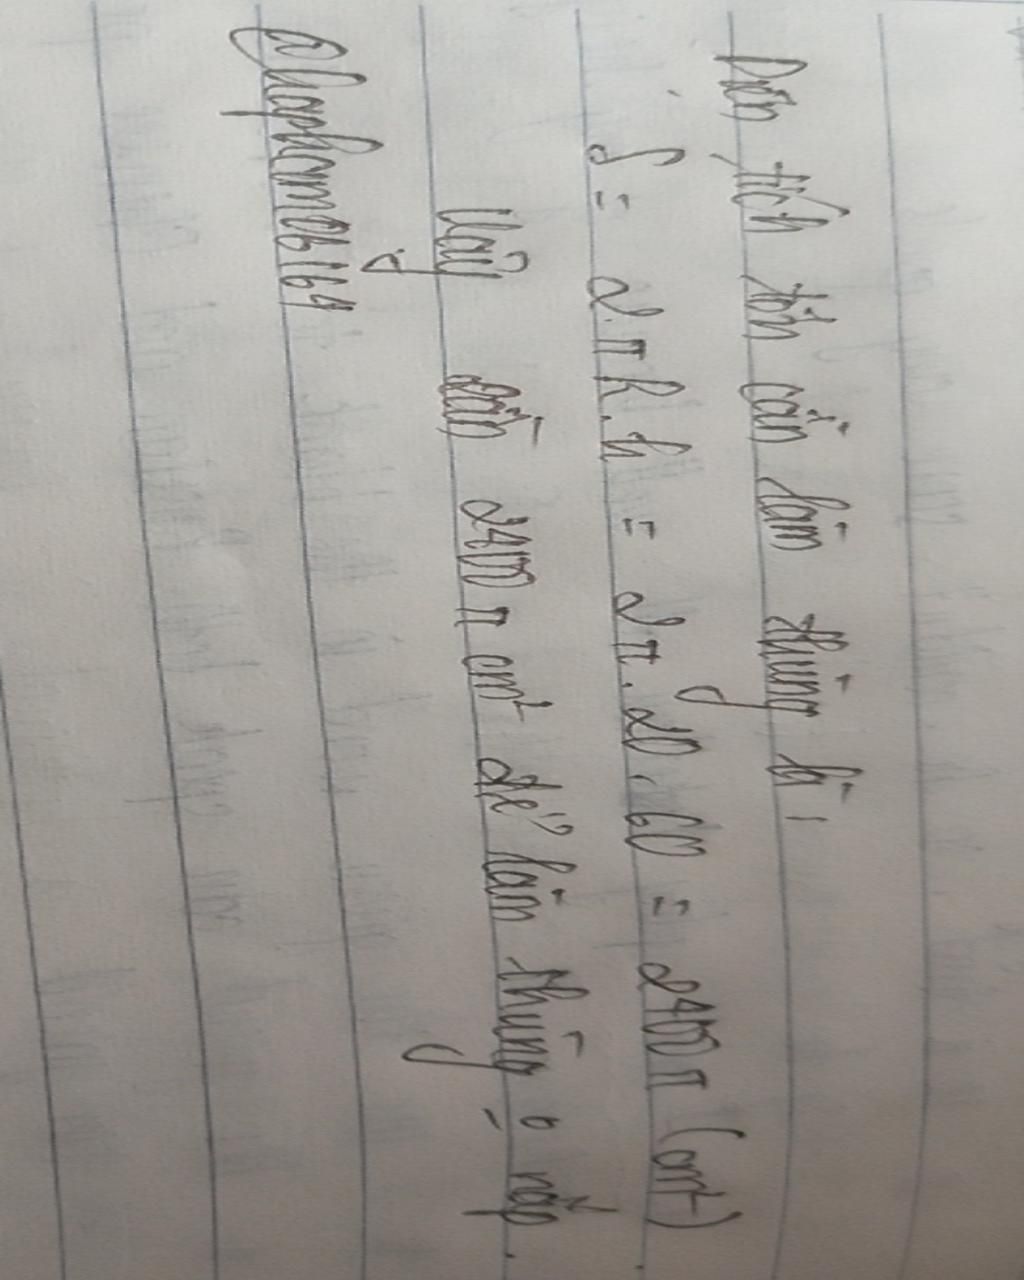 Diện tích tôn cần làm thùng là:
S = 2.π R.h = 2π.20.60 = 2400π (cm²)
Vậy cần 2400π cm² để làm thùng o nắp.
@Maphamob164